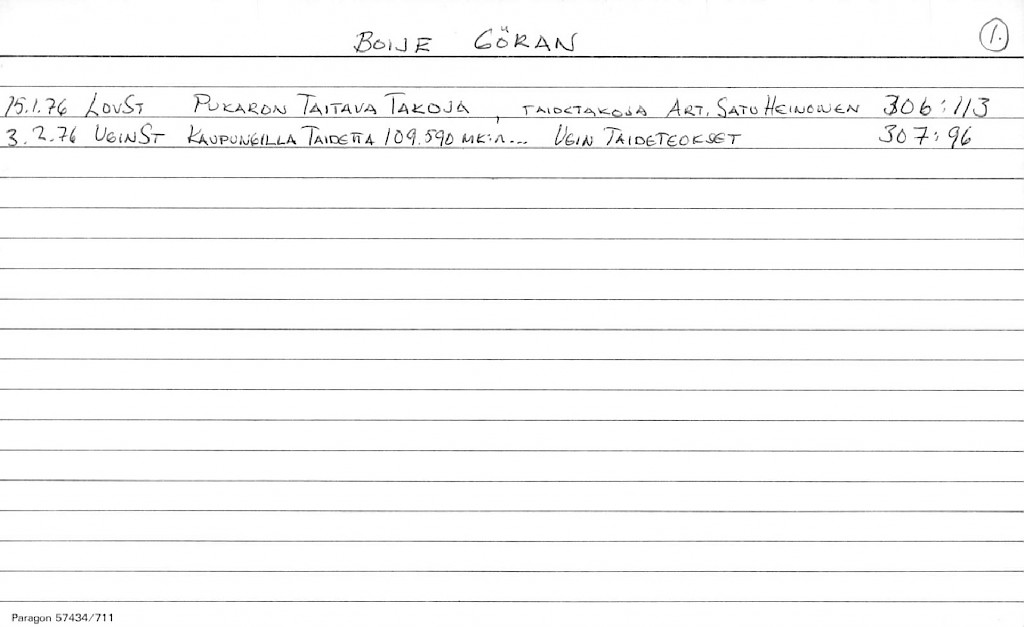 BOIJE GÖRAN 1.
15.1.76 LOVST PUKARON TAITAVA TAKOJA, TAIDETAKOJA ART. SATU HEINONEN 306:113
3.2.76 UGINST KAUPUNGILLA TAIDETTA 109.590 MK:N... VGIN TAIDETEOKSET 307:96
Paragon 57434/711